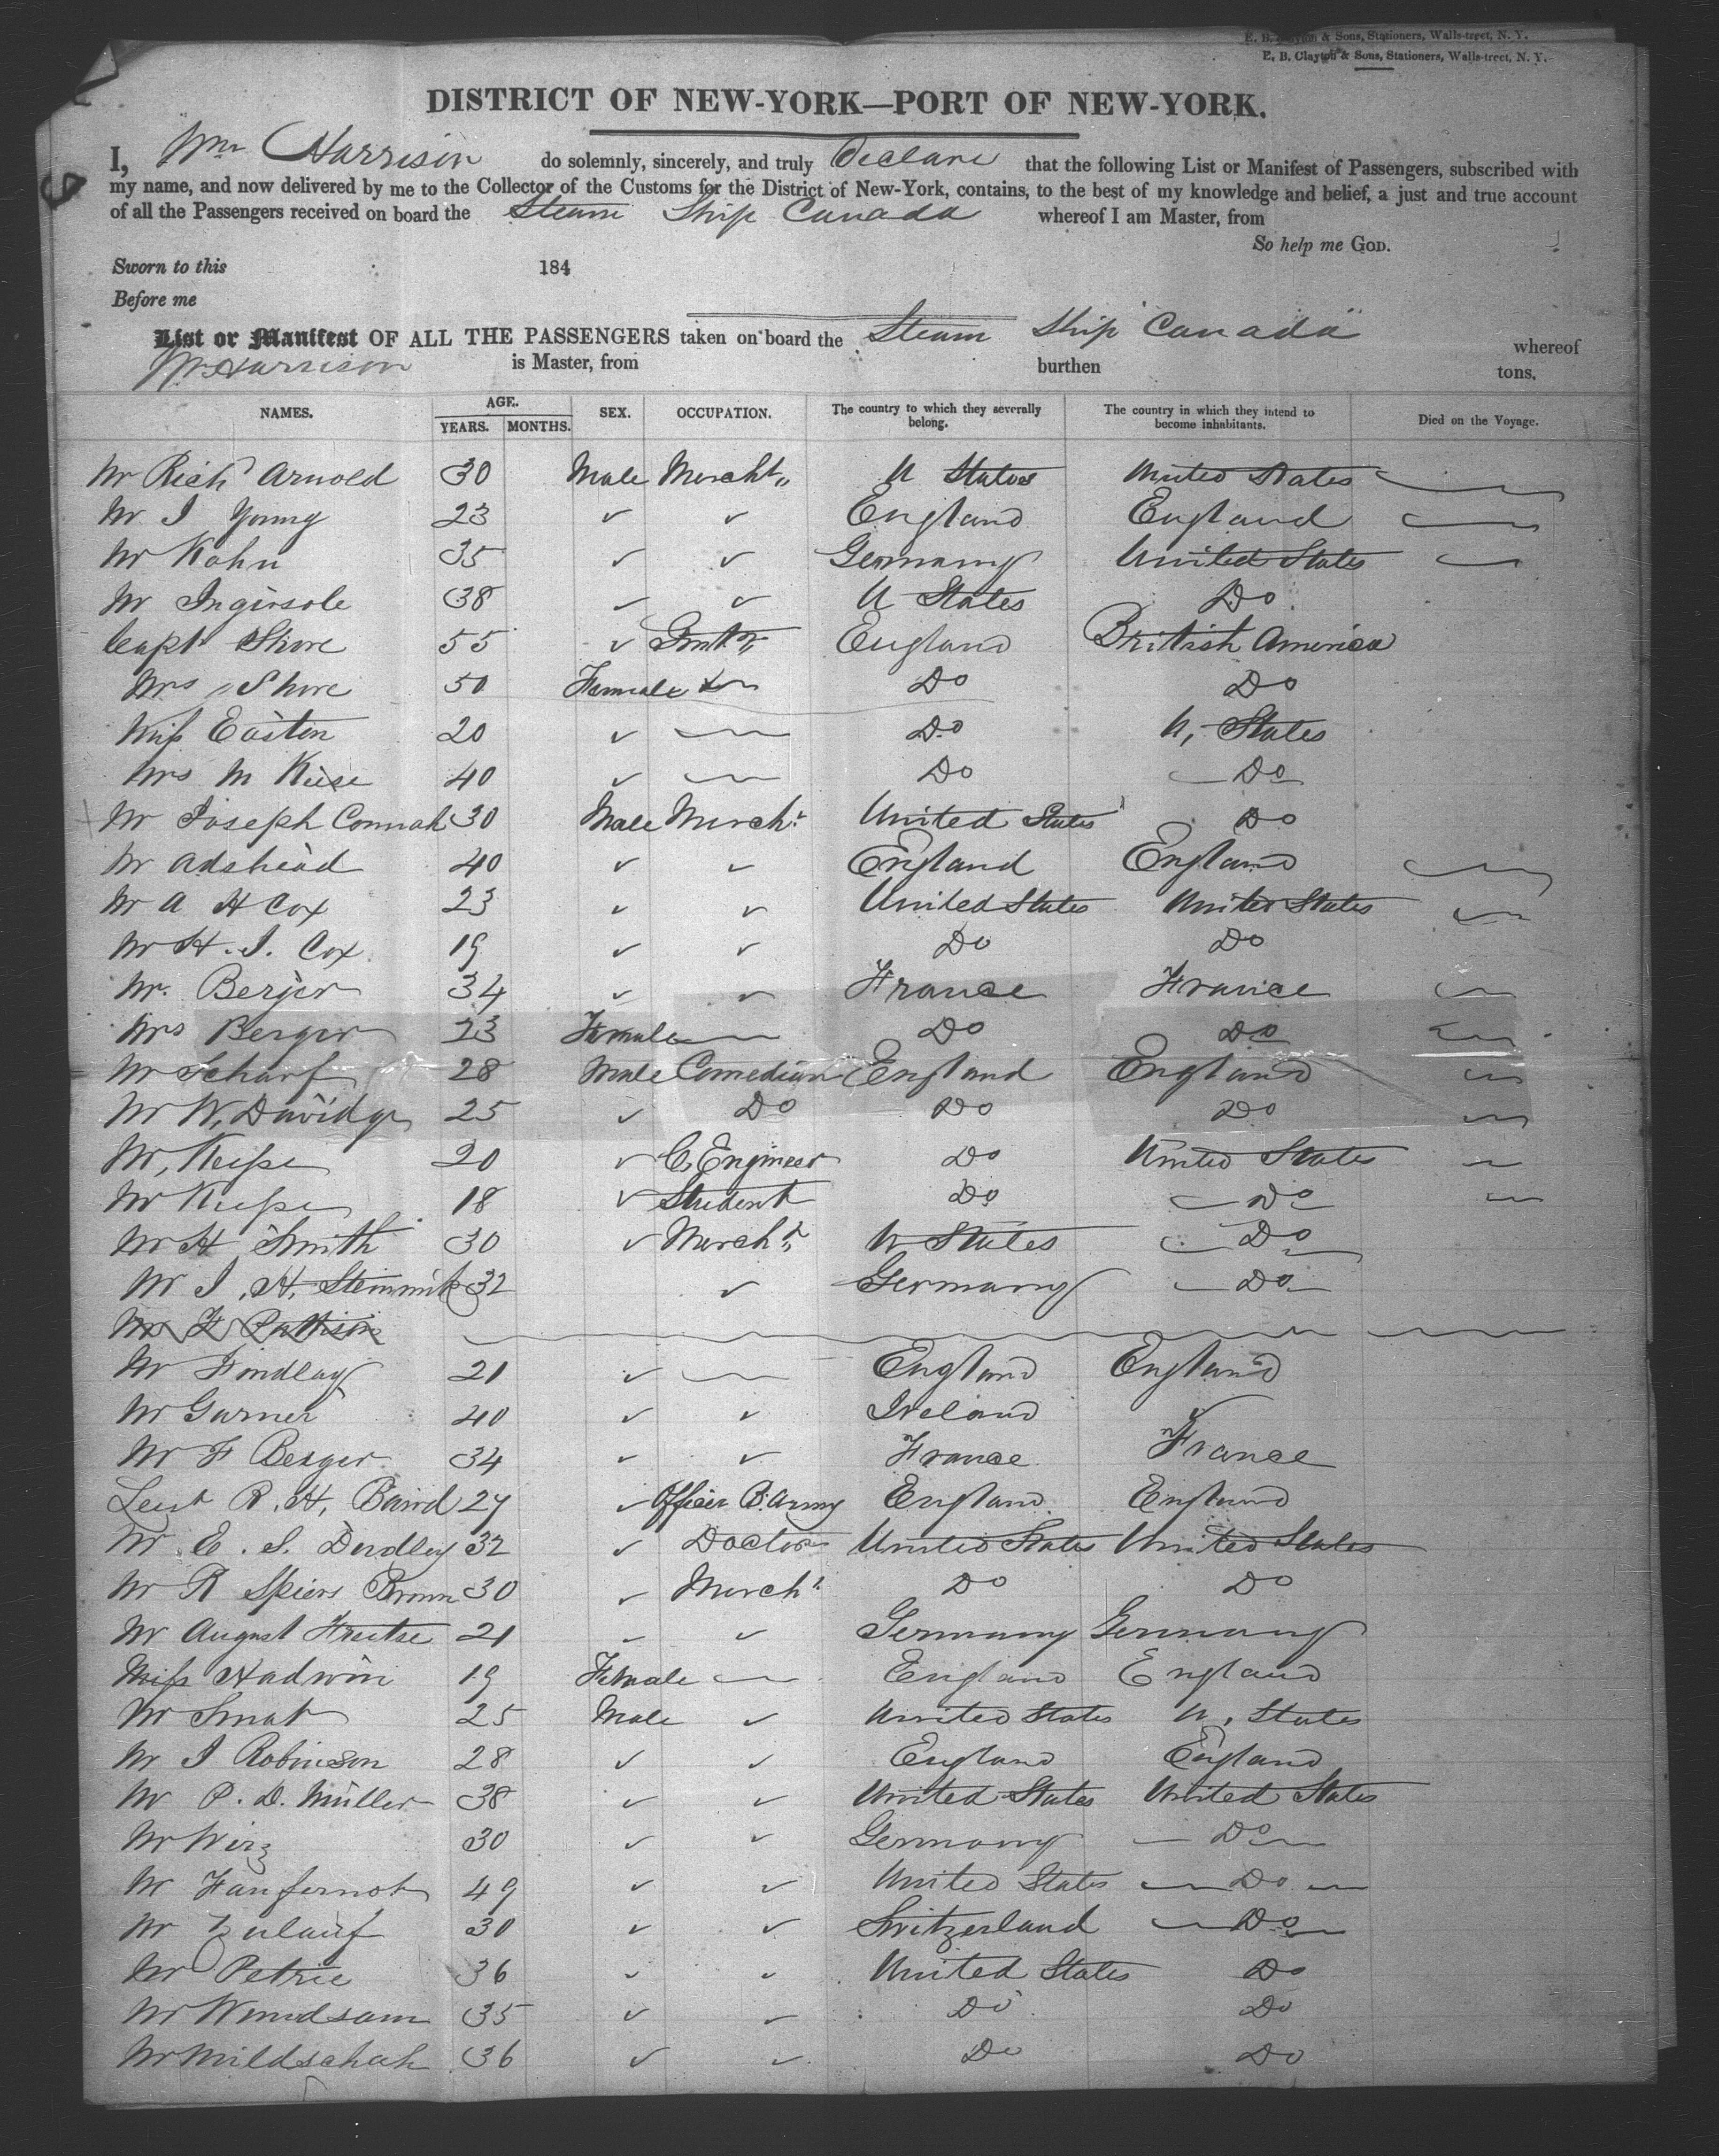 E. B. Clayton & Sons, Stationers, Wall-street, N. Y.
E. B. Clayton & Sons, Stationers, Wall-street, N. Y.
DISTRICT OF NEW-YORK—PORT OF NEW-YORK.
I, Wm Harrison do solemnly, sincerely, and truly Declare that the following List or Manifest of Passengers, subscribed with
my name, and now delivered by me to the Collector of the Customs for the District of New-York, contains, to the best of my knowledge and belief, a just and true account
of all the Passengers received on board the Steam Ship Canada whereof I am Master, from
So help me GOD.
Sworn to this 184
Before me
List or Manifest OF ALL THE PASSENGERS taken on board the Steam Ship Canada whereof
Wm Harrison is Master, from burthen tons.
NAMES. AGE. YEARS. MONTHS. SEX. OCCUPATION. The country to which they severally belong. The country in which they intend to become inhabitants. Died on the Voyage.
Mr Rich Arnold 30 Male Mercht U States United States
Mr J Young 23 ✓ ✓ England England
Mr Kohn 35 ✓ ✓ Germany United States
Mr Ingersole 38 ✓ ✓ U States Do
Capt Shore 55 ✓ England British America
Mrs Shore 50 Female Do Do
Miss Easton 20 ✓ Do U, States
Mrs M 40 ✓ Do Do
Mr Joseph Connah 30 Male Mercht United States Do
Mr Adshead 40 ✓ ✓ England England
Mr A H Cox 23 ✓ ✓ United States United States
Mr H. J. Cox 19 ✓ ✓ Do Do
Mr. Berger 34 ✓ ✓ France France
Mrs Berger 23 Female Do Do
Mr Scharf 28 Male Comedian England England
Mr W, Davidge 25 ✓ Do Do Do
Mr, 20 ✓ C, Engineer Do United States
Mr 18 ✓ Student Do Do
Mr H Smith 30 ✓ Mercht U States Do
Mr J, H, 32 ✓ Germany Do
Mr F Pattison
Mr Findlay 21 ✓ England England
Mr Garner 40 ✓ ✓ Ireland ✓
Mr F Berger 34 ✓ ✓ France France
Leut R, H, Baird 27 ✓ Officer B. Army England England
Mr E. S. Dudley 32 ✓ Doctor United States United States
Mr R Spiers Brown 30 ✓ Mercht Do Do
Mr August 21 ✓ ✓ Germany Germany
Miss Hadwin 19 Female England England
Mr Smat 25 Male ✓ United States U, States
Mr J Robinson 28 ✓ ✓ England England
Mr P. D. Müller 38 ✓ ✓ United States United States
Mr Wirz 30 ✓ ✓ Germany Do
Mr 49 ✓ ✓ United States Do
Mr Zulauf 30 ✓ ✓ Switzerland Do
Mr Petrie 36 ✓ ✓ United States Do
Mr 35 ✓ ✓ Do Do
Mr 36 ✓ ✓ Do Do